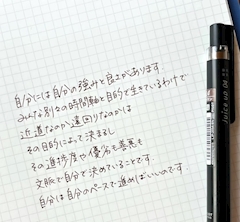 自分には自分の強みと良さがあります
みんな別々の時間軸と目的で生きているわけで
近道なのか遠回りなのかは
その目的によって決まるし
その進捗度や優劣も善悪も
文脈で自分で決めていることです。
自分は自分のペースで進めばいいのです.
Juice up 04